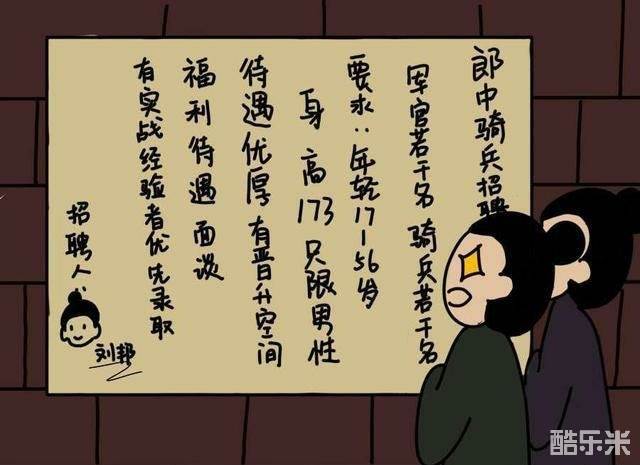 郎中骑兵招聘
军官若干名 骑兵若干名
要求：年轻17-56岁
身高173只限男性
待遇优厚有晋升空间
福利待遇面谈
有实战经验者优先录取
招聘人：
刘邦
酷乐米